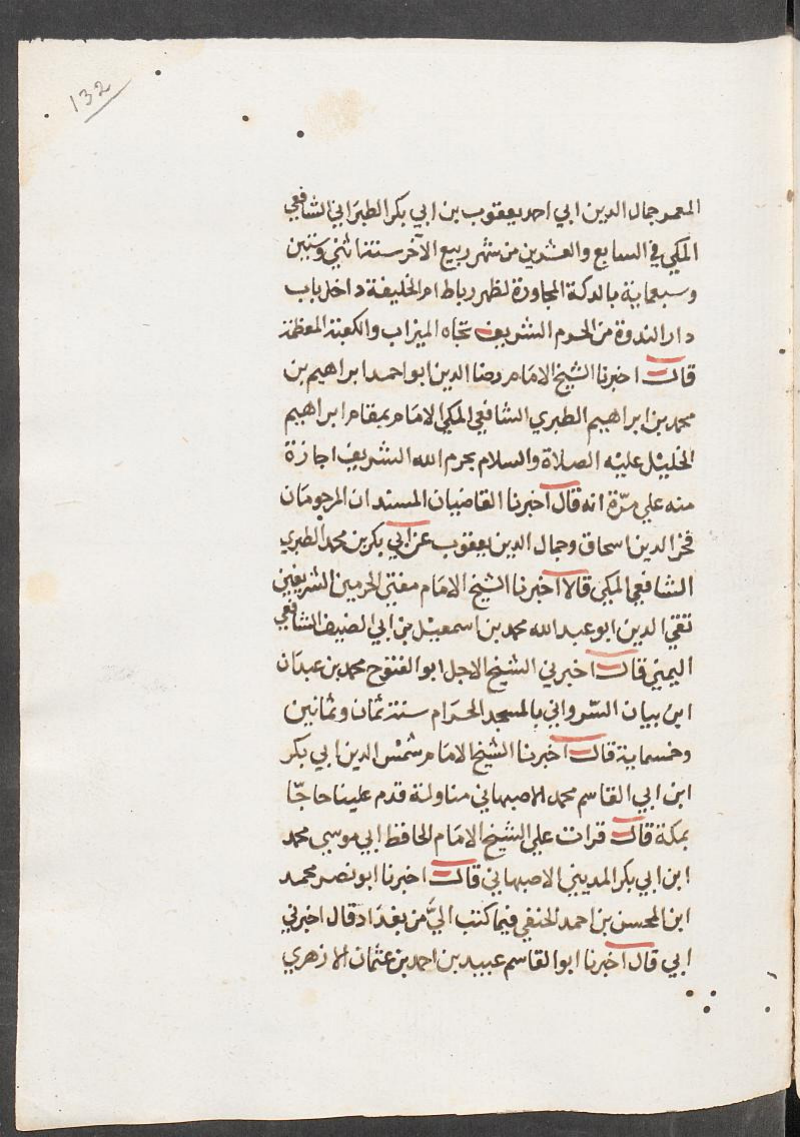 132
المعمر جمال الدين ابي احمد يعقوب بن ابي بكر الطبراني الشافعي
المكي في السابع والعشرين من شهر ربيع الآخر سنة اثني وستين
وسبعماية بالدكة المجاورة لظهر رباط ام الخليفة داخل باب
دار الندوة من الحرم الشريف تجاه الميزاب والكعبة المعظمة
قالـ اخبرنا الشيخ الامام رضا الدين ابو احمد ابراهيم بن
محمد بن ابراهيم الطبري الشافعي المكي الامام بمقام ابراهيم
الخليل عليه الصلاة والسلام بحرم الله الشريف اجازة
منه علي مرّة انه قال اخبرنا القاضيان المسندان المرحومان
فخر الدين اسحاق وجمال الدين يعقوب عن ابي بكر بن محمد الطبري
الشافعي المكي قالا اخبرنا الشيخ الامام مفتي الحرمين الشريفين
تقي الدين ابو عبد الله محمد بن اسمعيل بن ابي الضيف الشافعي
اليمني قال اخبرني الشيخ الاجل ابو الفتوح محمد بن عبدان
ابن بيان السّرواني بالمسجد الحرام سنة ثمان وثمانين
وخمسماية قال اخبرنا الشيخ الامام شمس الدين ابي بكر
ابن ابي القاسم محمد الاصبهاني مناولة قدم علينا حاجّا
بمكة قال قرات علي الشيخ الامام الحافظ ابي موسي محمد
ابن ابي بكر المديني الاصبهاني قال اخبرنا ابو نصر محمد
ابن المحسن بن احمد الحنفي فيما كتب اليَّ من بغداد قال اخبرني
ابي قال اخبرنا ابو القاسم عبيد بن احمد بن عثمان الازهري